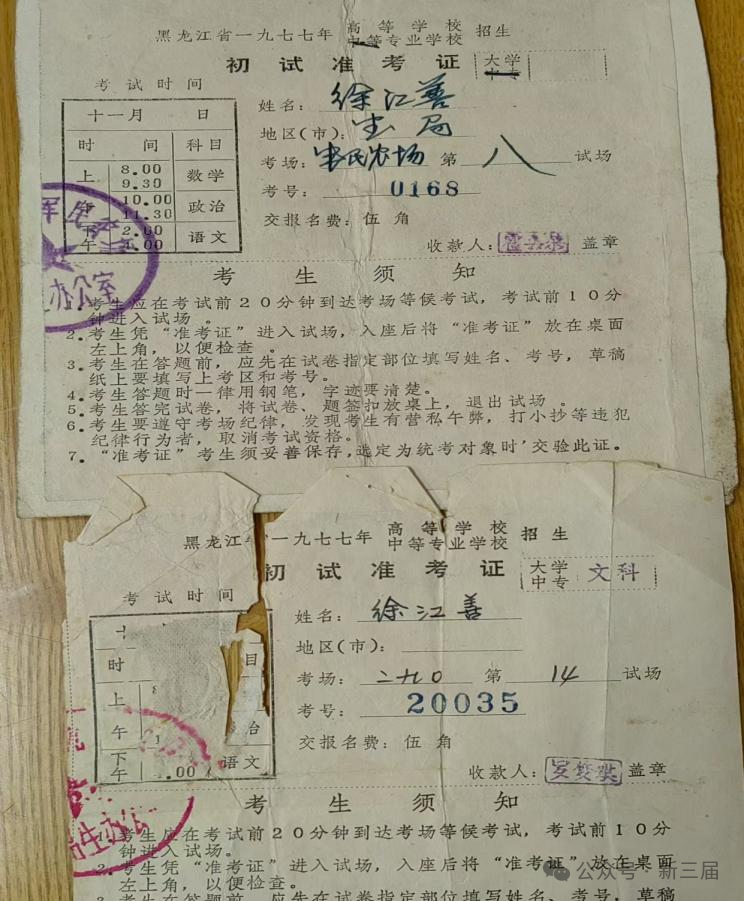 黑龙江省一九七七年 高等学校 中等专业学校 招生
初试准考证 大学 中专
考试时间
十一月 日
时间 科目
上 8.00 9.30 数学
午 10.00 11.30 政治
下午 2.00 4.00 语文
姓名:徐江善
地区(市):局
考场:农场 第八试场
考号:0168
交报名费:伍角
收款人: 盖章
办公室
考生须知
考生应在考试前20分钟到达考场等侯考试,考试前10分
钟进入试场。
2.考生凭“准考证”进入试场,入座后将“准考证”放在桌面
左上角,以便检查。
3.考生在答题前,应先在试卷指定部位填写姓名、考号,草稿
纸上要填写上考区和考号。
4.考生答题时一律用钢笔,字迹要清楚。
5.考生答完试卷,将试卷、题签扣放桌上,退出试场。
6.考生要遵守考场纪律,发现考生有营私午弊,打小抄等违犯
纪律行为者,取消考试资格。
7.“准考证”考生须妥善保存,选定为统考对象时'交验此证。
黑龙江省一九七七年 高等学校 中等专业学校 招生
初试准考证 大学 中专 文科
考试时间
时 目
上
午 治
下午 .00 语文
姓名:徐江善
地区(市):
考场:二九〇 第14试场
考号:20035
交报名费:伍角
收款人: 盖章
生办公
考生须知
1.考生应在考试前20分钟到达考场等侯考试,考试前10分
钟进入试场。
2.考生凭“准考证”进入试场,入座后将“准考证”放在桌面
左上角,以便检查。
3.考生在答题前,应先在试卷指定部位填写姓名、考号,草稿
公众号·新三届